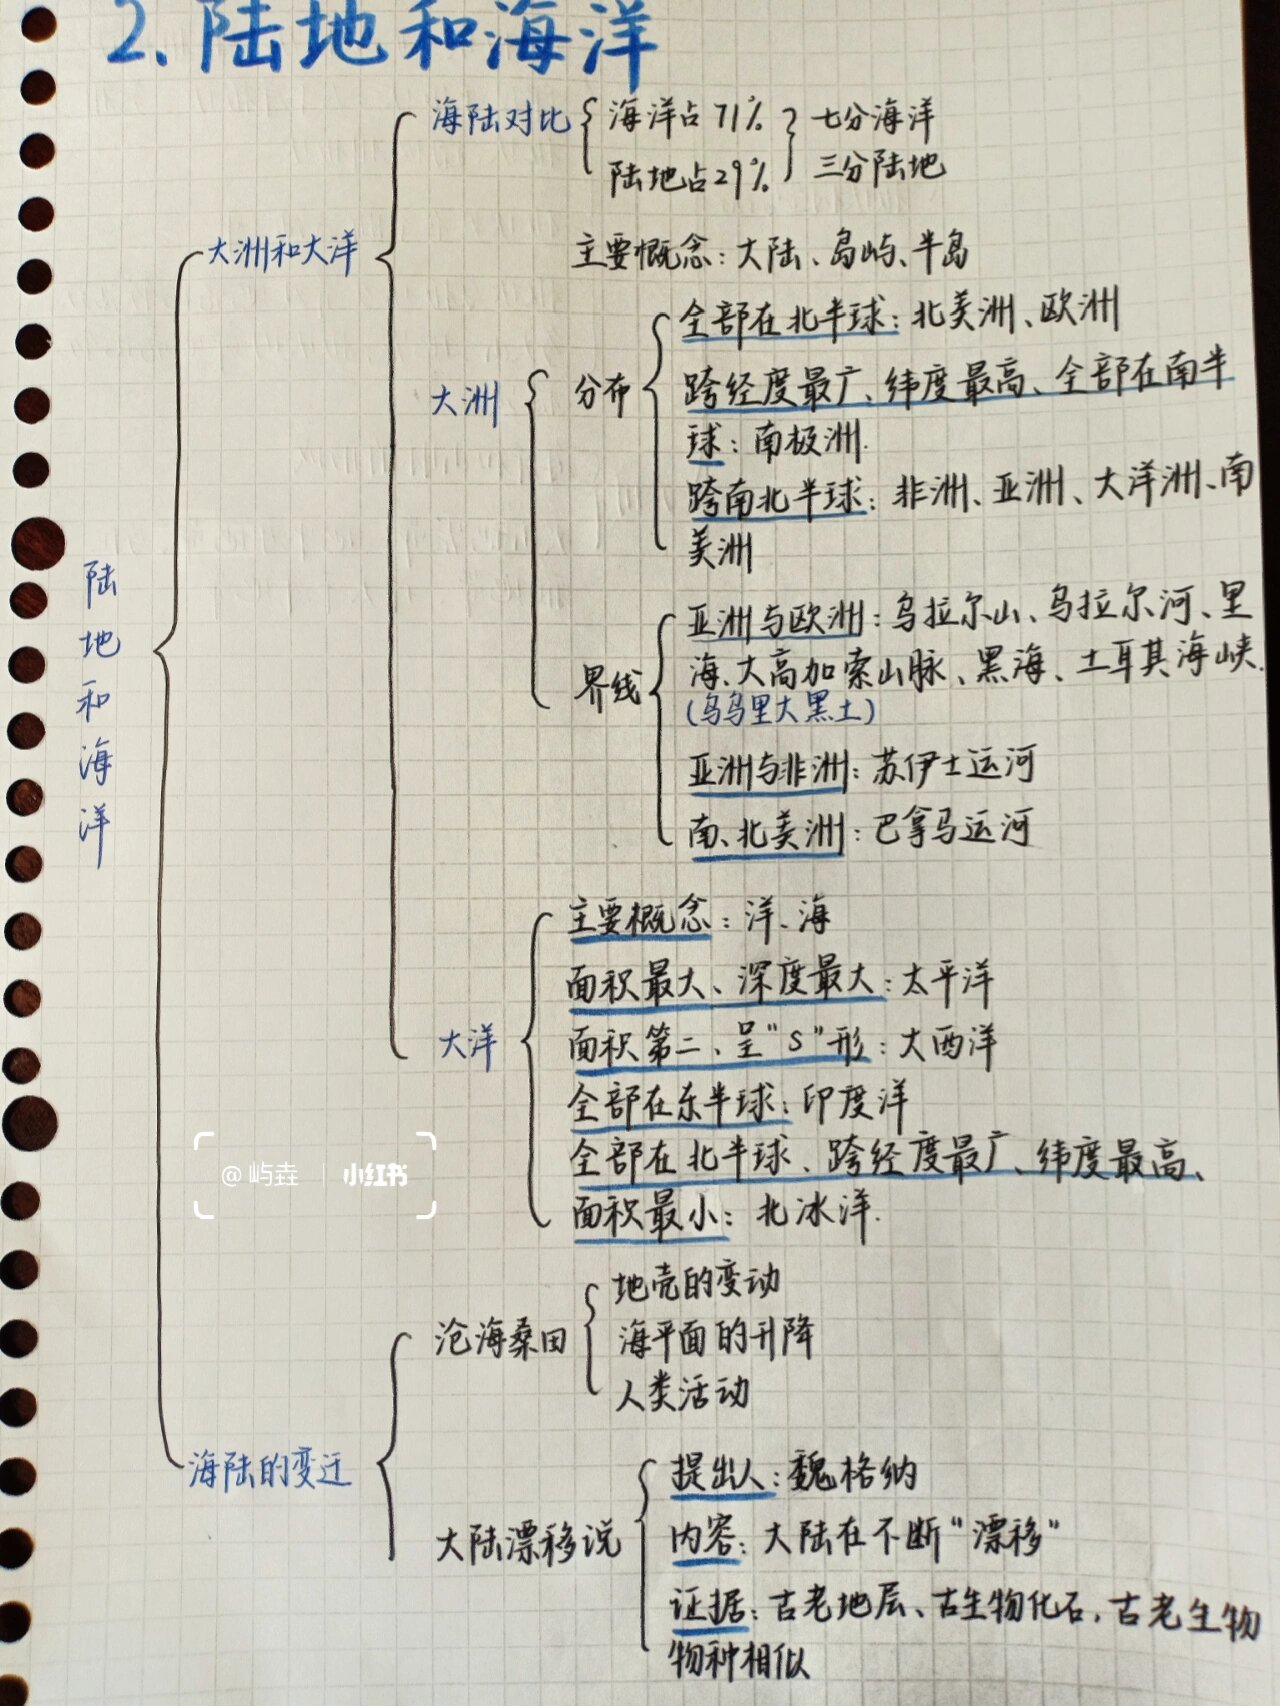 2.陆地和海洋
陆地和海洋
大洲和大洋
海陆对比
海洋占71%
陆地占29%
七分海洋
三分陆地
大洲
主要概念：大陆、岛屿、半岛
分布
全部在北半球：北美洲、欧洲
跨经度最广、纬度最高、全部在南半
球：南极洲.
跨南北半球：非洲、亚洲、大洋洲、南
美洲
界线
亚洲与欧洲：乌拉尔山、乌拉尔河、里
海、大高加索山脉、黑海、土耳其海峡.
(乌乌里大黑土)
亚洲与非洲：苏伊士运河
南、北美洲：巴拿马运河
大洋
主要概念：洋、海
面积最大、深度最大：太平洋
面积第二、呈"S"形：大西洋
全部在东半球：印度洋
全部在北半球、跨经度最广、纬度最高、
面积最小：北冰洋.
@屿垚 | 小红书
海陆的变迁
沧海桑田
地壳的变动
海平面的升降
人类活动
大陆漂移说
提出人：魏格纳
内容：大陆在不断"漂移"
证据：古老地层、古生物化石,古老生物
物种相似